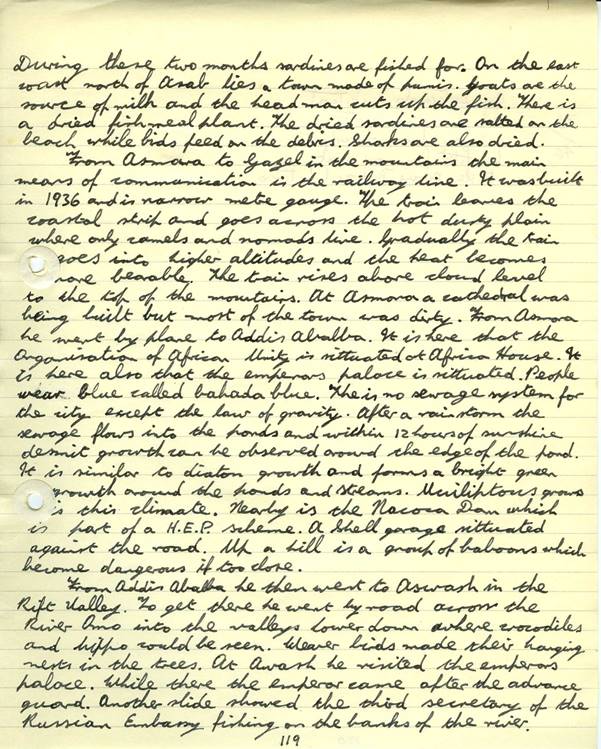 During these two months sardines are fished for. On the east
coast north of Asab lies a town made of pumis. Goats are the
source of milk and the head man cuts up the fish. There is
a dried fishmeal plant. The dried sardines are salted on the
beach while bids feed on the debris. Sharks are also dried.
From Asmara to Gazel in the mountains the main
means of communication is the railway line. It was built
in 1936 and is narrow metre gauge. The train leaves the
coastal strip and goes across the hot dusty plain
where only camels and nomads live. Gradually the train
goes into higher altitudes and the heat becomes
more bearable. The train rises above cloud level
to the top of the mountains. At Asmara a cathedral was
being built but most of the town was dirty. From Asmora
he went by plane to Addis Abalba. It is here that the
Organisation of African Unity is sittuated at Africa House. It
is here also that the emperors palace is sittuated. People
wear blue called bahada blue. The is no sewage system for
the city except the law of gravity. After a rainstorm the
sewage flows into the ponds and within 12 hours of sunshine
desmit growth can be observed around the edge of the pond.
It is similar to diaton growth and forms a bright green
growth around the ponds and streams. Uuiliptous grows
is this climate. Nearby is the Nacoca Dam which
is part of a H.E.P. scheme. A Shell garage sittuated
against the road. Up a hill is a group of baboons which
become dangerous if too close.
From Addis Abalba he then went to Aswash in the
Rift Valley. To get there he went by road across the
River Omo into the valleys lower down where crocodiles
and hippo could be seen. Weaver bids made their hanging
nests in the trees. At Awash he visited the emperors
palace. While there the emperor came after the advance
guard. Another slide showed the third secretary of the
Russian Embassy fishing on the banks of the river.
119